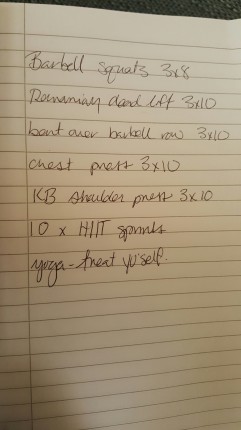 Barbell squats 3x8
Romanian dead lift 3x10
bent over barbell row 3x10
chest press 3x10
KB shoulder press 3x10
10 x HIIT sprints
yoga - treat yo'self.